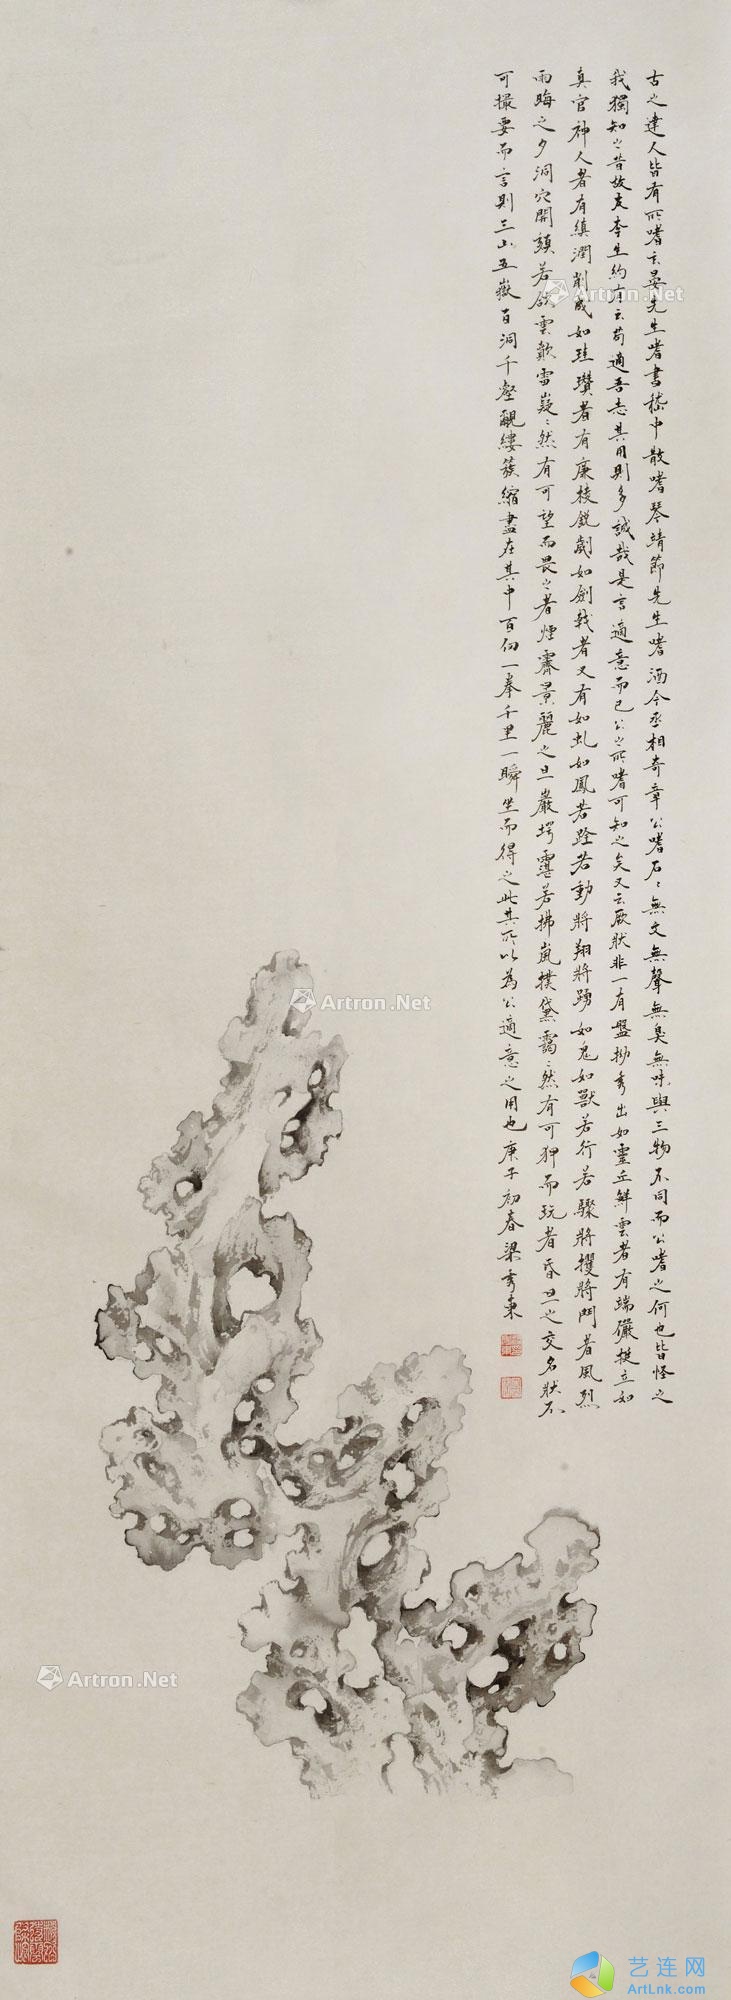 古之達人皆有所嗜玄晏先生嗜書嵇中散嗜琴靖節先生嗜酒今丞相奇章公嗜石石無文無聲無臭無味與三物不同而公嗜之何也皆怪之
我獨知之昔故友李生約有云苟適吾志其用則多誠哉是言適意而已公之所嗜可知之矣又云厥狀非一有盤拗秀出如靈丘鮮雲者有端儼挺立如
真官神人者有縝潤削成如珪瓚者有廉稜銳劌如劍戟者又有如虬如鳳若跧若動將翔將踴如鬼如獸若行若驟將攫將鬥者風烈
雨晦之夕洞穴開頦若欱雲歕雷嶷〻然有可望而畏之者煙霽景麗之旦巖堮霮若拂嵐撲黛靄〻然有可狎而玩者昏旦之交名狀不
可撮要而言則三山五嶽百洞千壑覼縷簇縮盡在其中百仞一拳千里一瞬坐而得之此其所以為公適意之用也庚子初春梁秀東
Artron.Net
Artron.Net
Artron.Net
Artron.Net
艺连网
ArtLnk.com